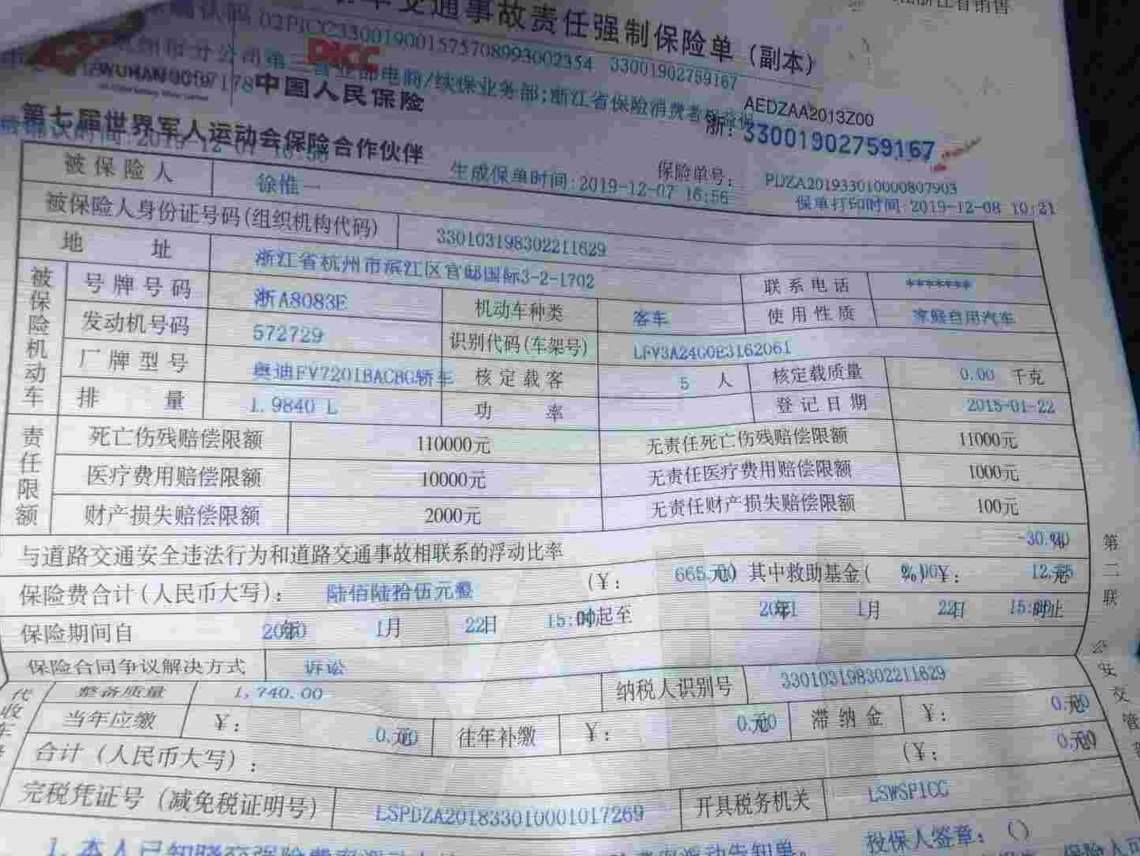 交通事故责任强制保险单（副本）
02PICC330019001575708993002354 33001902759167
第三营业部电商/续保业务部;浙江省保险消费者
PICC
WUHAN 2019
中国人民保险
AEDZAA2013Z00
浙：33001902759167
第七届世界军人运动会保险合作伙伴
生成保单时间:2019-12-07 16:56 保险单号: PDZA201933010000807903
保单打印时间:2019-12-08 10:21
被保险人 徐惟一
被保险人身份证号码(组织机构代码) 330103198302211629
地 址 浙江省杭州市滨江区官邸国际3-2-1702 联系电话 *******
被保险机动车
号牌号码 浙A8083E 机动车种类 客车 使用性质 家庭自用汽车
发动机号码 572729 识别代码(车架号) LFV3A24G0E3162061
厂牌型号 奥迪FV7201BACBG轿车 核定载客 5 人 核定载质量 0.00 千克
排 量 1.9840 L 功 率 登记日期 2015-01-22
责任限额
死亡伤残赔偿限额 110000元 无责任死亡伤残赔偿限额 11000元
医疗费用赔偿限额 10000元 无责任医疗费用赔偿限额 1000元
财产损失赔偿限额 2000元 无责任财产损失赔偿限额 100元
与道路交通安全违法行为和道路交通事故相联系的浮动比率 -30.%
保险费合计(人民币大写): 陆佰陆拾伍元整 (¥: 665.元) 其中救助基金( %)¥: 12. 元
保险期间自 年 1月 22日 15: 时起至 年 1月 22日 15: 时止
保险合同争议解决方式 诉讼
整备质量 1,740.00 纳税人识别号 330103198302211629
当年应缴 ¥: 0. 元 往年补缴 ¥: 0. 元 滞纳金 ¥: 0. 元
合计（人民币大写）: (¥: 0. 元
完税凭证号（减免税证明号） LSPDZA201833010001017269 开具税务机关 LSWSPICC
第二联
公安交管
代收车
1.本人已知晓交强险费率浮动
投保人签章: ()